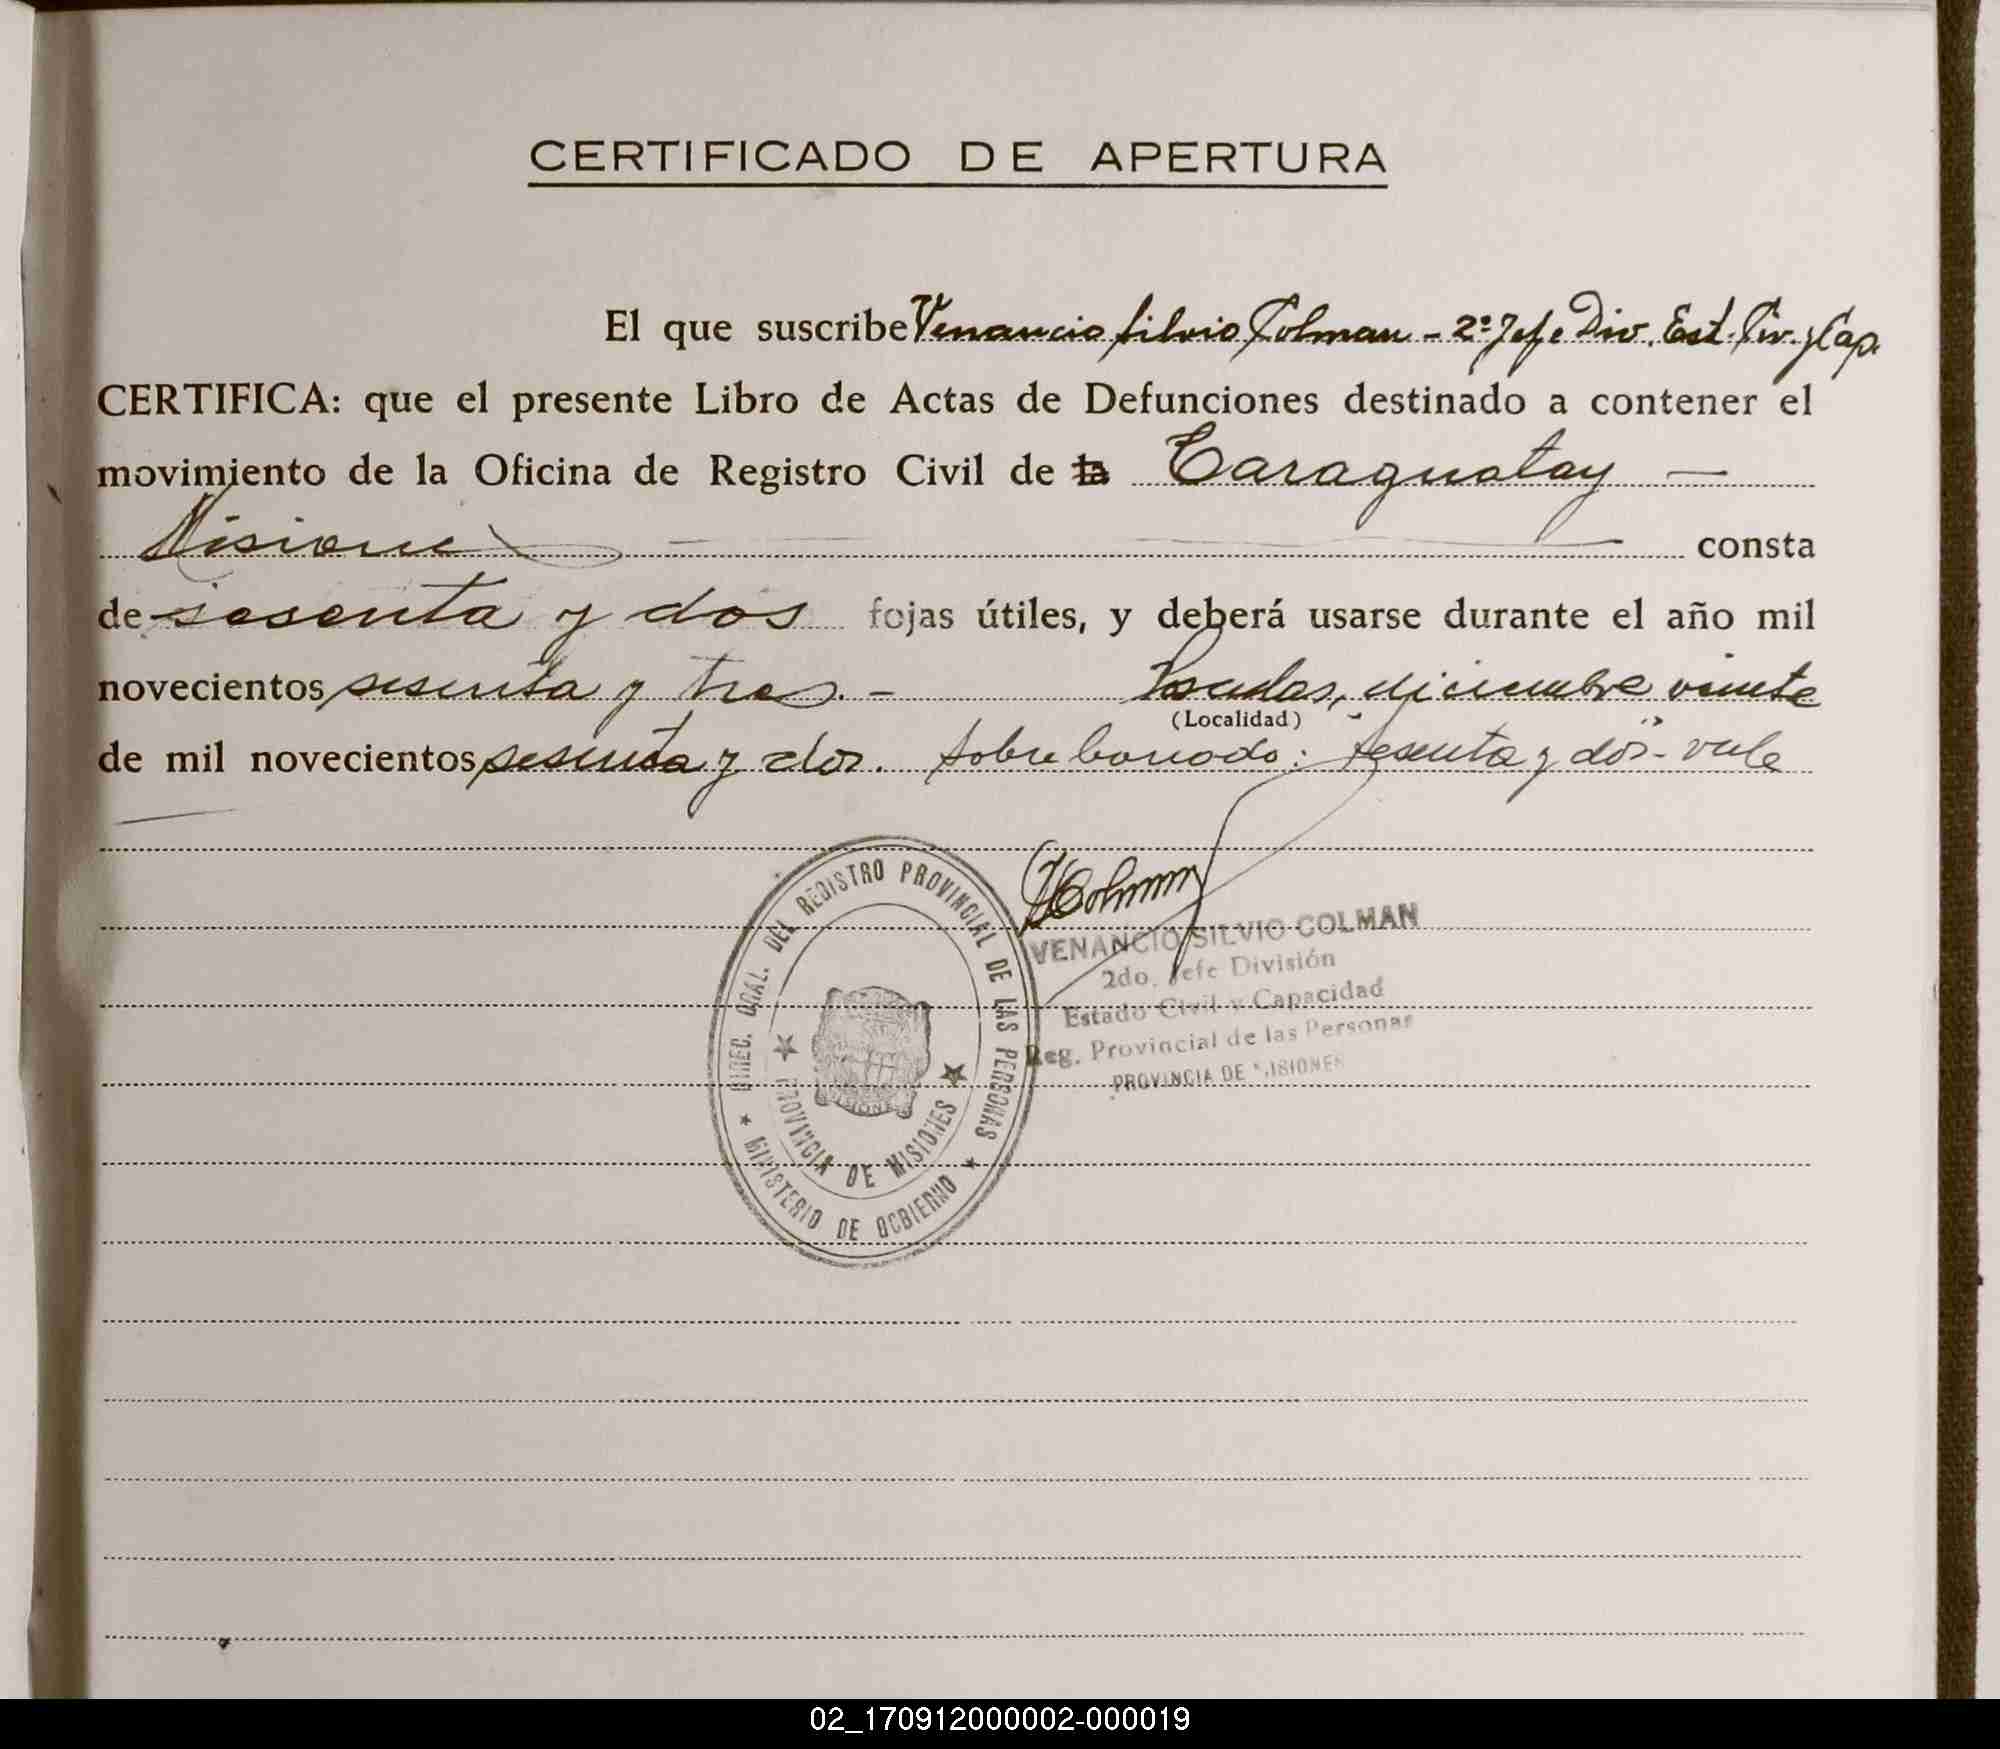 CERTIFICADO DE APERTURA
El que suscribe Venancio Silvio Colman - 2º Jefe Div. Est. Civ. y Cap.
CERTIFICA: que el presente Libro de Actas de Defunciones destinado a contener el
movimiento de la Oficina de Registro Civil de la Caraguatay —
Misiones — consta
de sesenta y dos fojas útiles, y deberá usarse durante el año mil
novecientos sesenta y tres. - Posadas, diciembre veinte
(Localidad)
de mil novecientos sesenta y dos. Sobre borrado: "sesenta y dos" - vale
VColman
VENANCIO SILVIO COLMAN
2do. Jefe División
Estado Civil y Capacidad
Reg. Provincial de las Personas
PROVINCIA DE MISIONES
DIREC. GRAL. DEL REGISTRO PROVINCIAL DE LAS PERSONAS
★ PROVINCIA DE MISIONES ★
★ MINISTERIO DE GOBIERNO ★
MISIONES
02_170912000002-000019